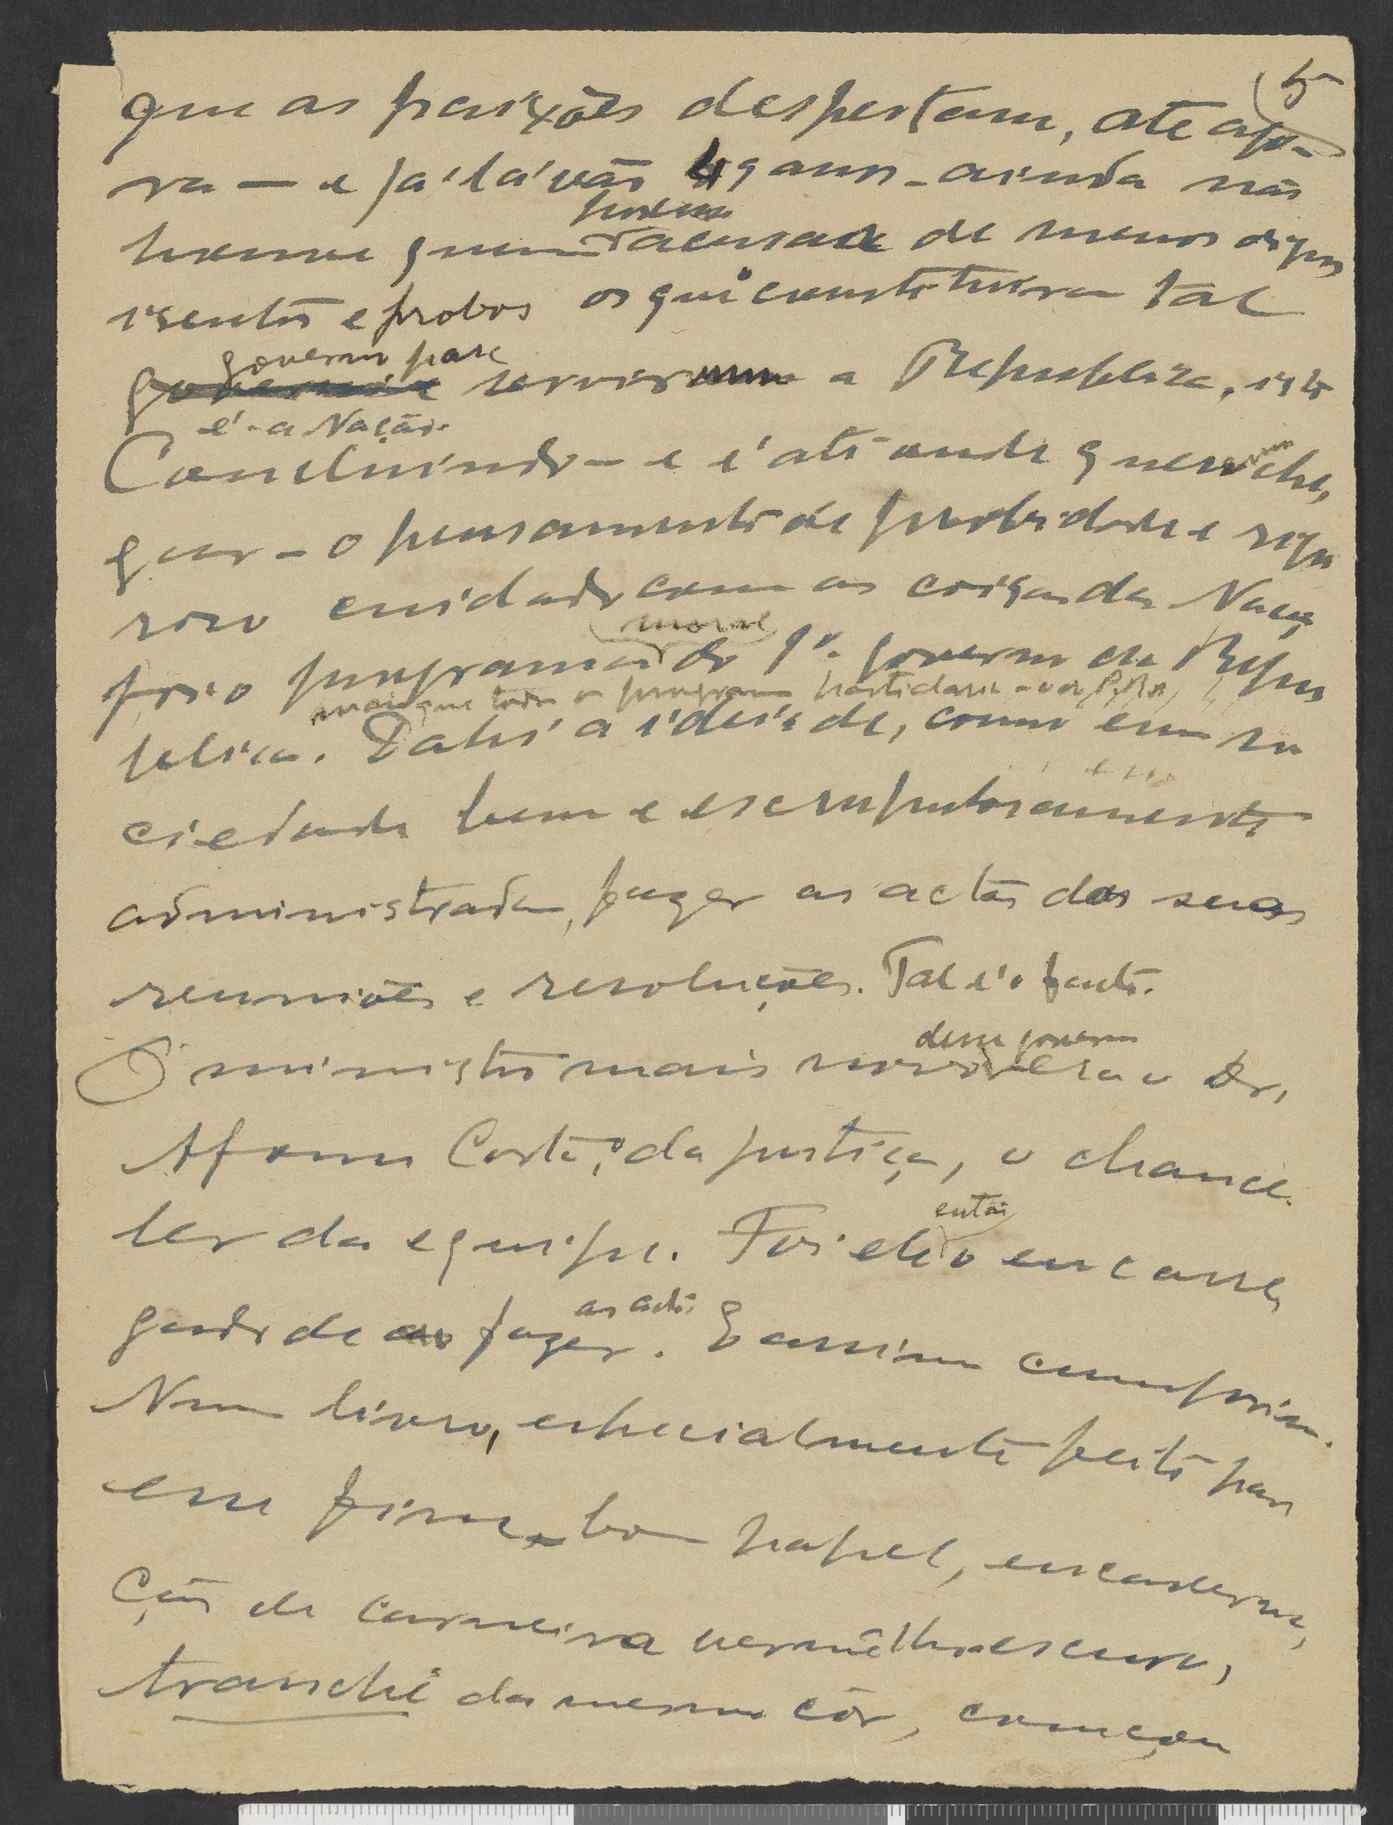 5
que as paixões despertam, até ago-
ra — e já lá vão 49 anos — ainda não
houve quem podesse acusar de menos dignos
isentos e probos os que constituiram tal
governo para servir a Republica, isto
é - a Nação.
Concluindo — e é até onde quero che,
gar — o pensamento de probidade e rigo
roso cuidado com as coisas da Nação
foi o programa moral do 1º governo da Repu
mais que todo o programa partidario
blica. Dahi a ideia de, como em so
ciedade bem e escrupulosamente
administrada, fazer as actas das suas
reuniões e resoluções. Tal é o facto.
O ministro mais novo desse governo era o Dr.
Afonso Costa, o da justiça, o chance-
ler da equipe. Foi ele então o encarre,
gado de fazer as actas. E assim cumpriu.
Num livro, especialmente feito para
esse fim, bom papel, encaderna,
ção de carneira vermelho escuro,
tranche da mesma côr, começou